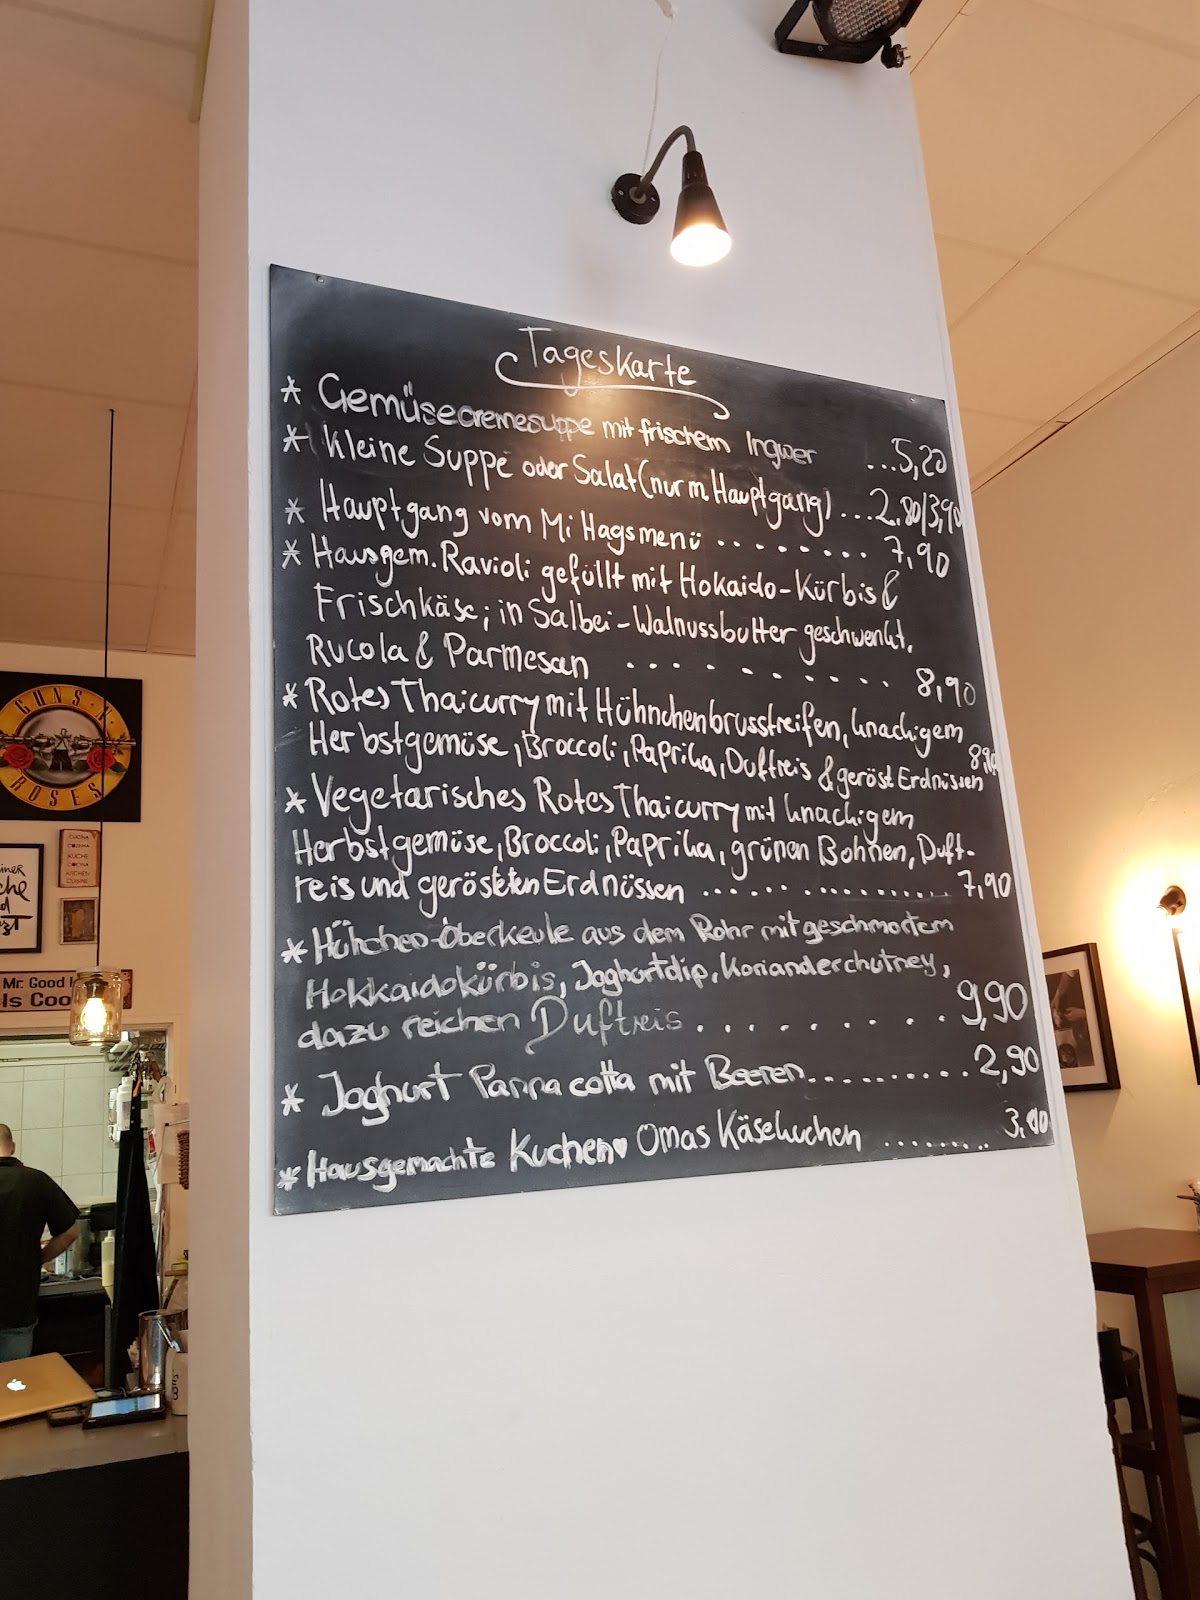 Tageskarte
* Gemüsecremesuppe mit frischem Ingwer ...5,20
* Kleine Suppe oder Salat (nur m. Hauptgang) ...2.90/3,90
* Hauptgang vom Mittagsmenü ........ 7,90
* Hausgem. Ravioli gefüllt mit Hokaido-Kürbis &
Frischkäse; in Salbei-Walnussbutter geschwenkt,
Rucola & Parmesan ......... 8,90
* Rotes Thaicurry mit Hühnchenbrusstreifen, knackigem
Herbstgemüse, Broccoli, Paprika, Duftreis & geröst Erdnüssen 8,90
* Vegetarisches Rotes Thaicurry mit knackigem
Herbstgemüse, Broccoli, Paprika, grünen Bohnen, Duft-
reis und gerösteten Erdnüssen .............. 7,90
* Hühchen-Oberkeule aus dem Rohr mit geschmortem
Hokkaidokürbis, Joghurtdip, Korianderchutney,
dazu reichen Duftreis .......... 9,90
* Joghurt Panna cotta mit Beeren.......... 2,90
* Hausgemachte Kuchen♥ Omas Käsekuchen ......... 3,90
GUNS N' ROSES
CUCINA
KÜCHE
COCINA
KITCHEN
CUISINE
Mr. Good
Is Coo